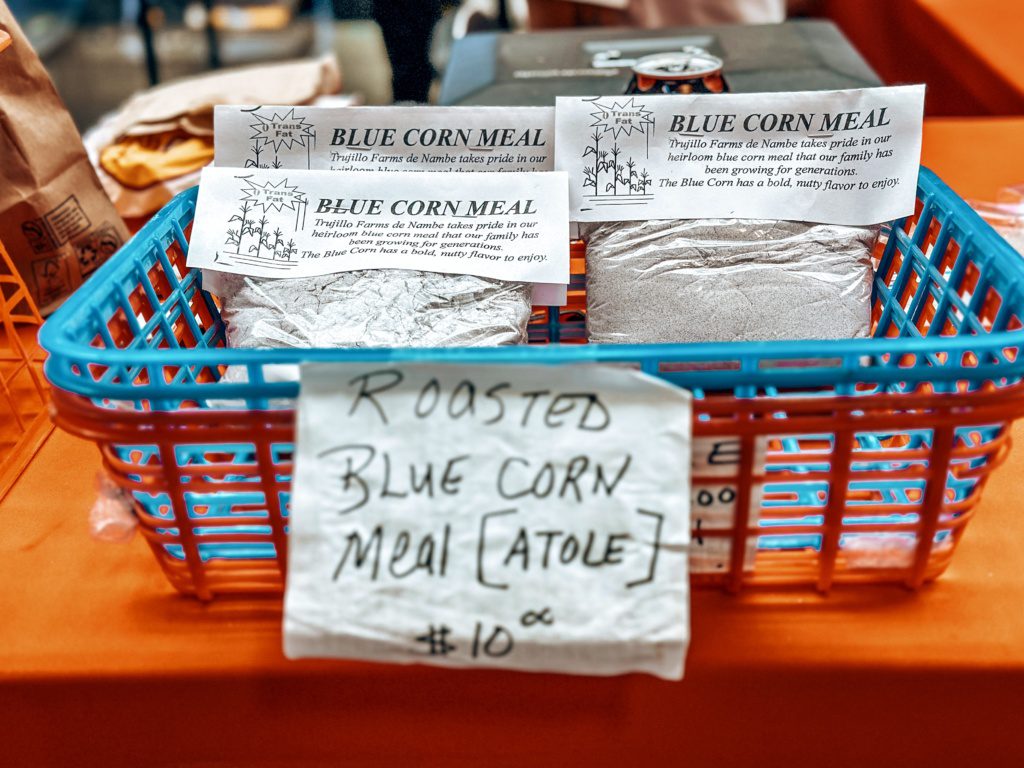 0 Trans
Fat
BLUE CORN MEAL
Trujillo Farms de Nambe takes pride in our
heirloom blue corn meal that our family has
0 Trans
Fat
BLUE CORN MEAL
Trujillo Farms de Nambe takes pride in our
heirloom blue corn meal that our family has
been growing for generations.
The Blue Corn has a bold, nutty flavor to enjoy.
0 Trans
Fat
BLUE CORN MEAL
Trujillo Farms de Nambe takes pride in our
heirloom blue corn meal that our family has
been growing for generations.
The Blue Corn has a bold, nutty flavor to enjoy.
ROASTED
BLUE CORN
Meal [ATOLE]
$10 00
E
00